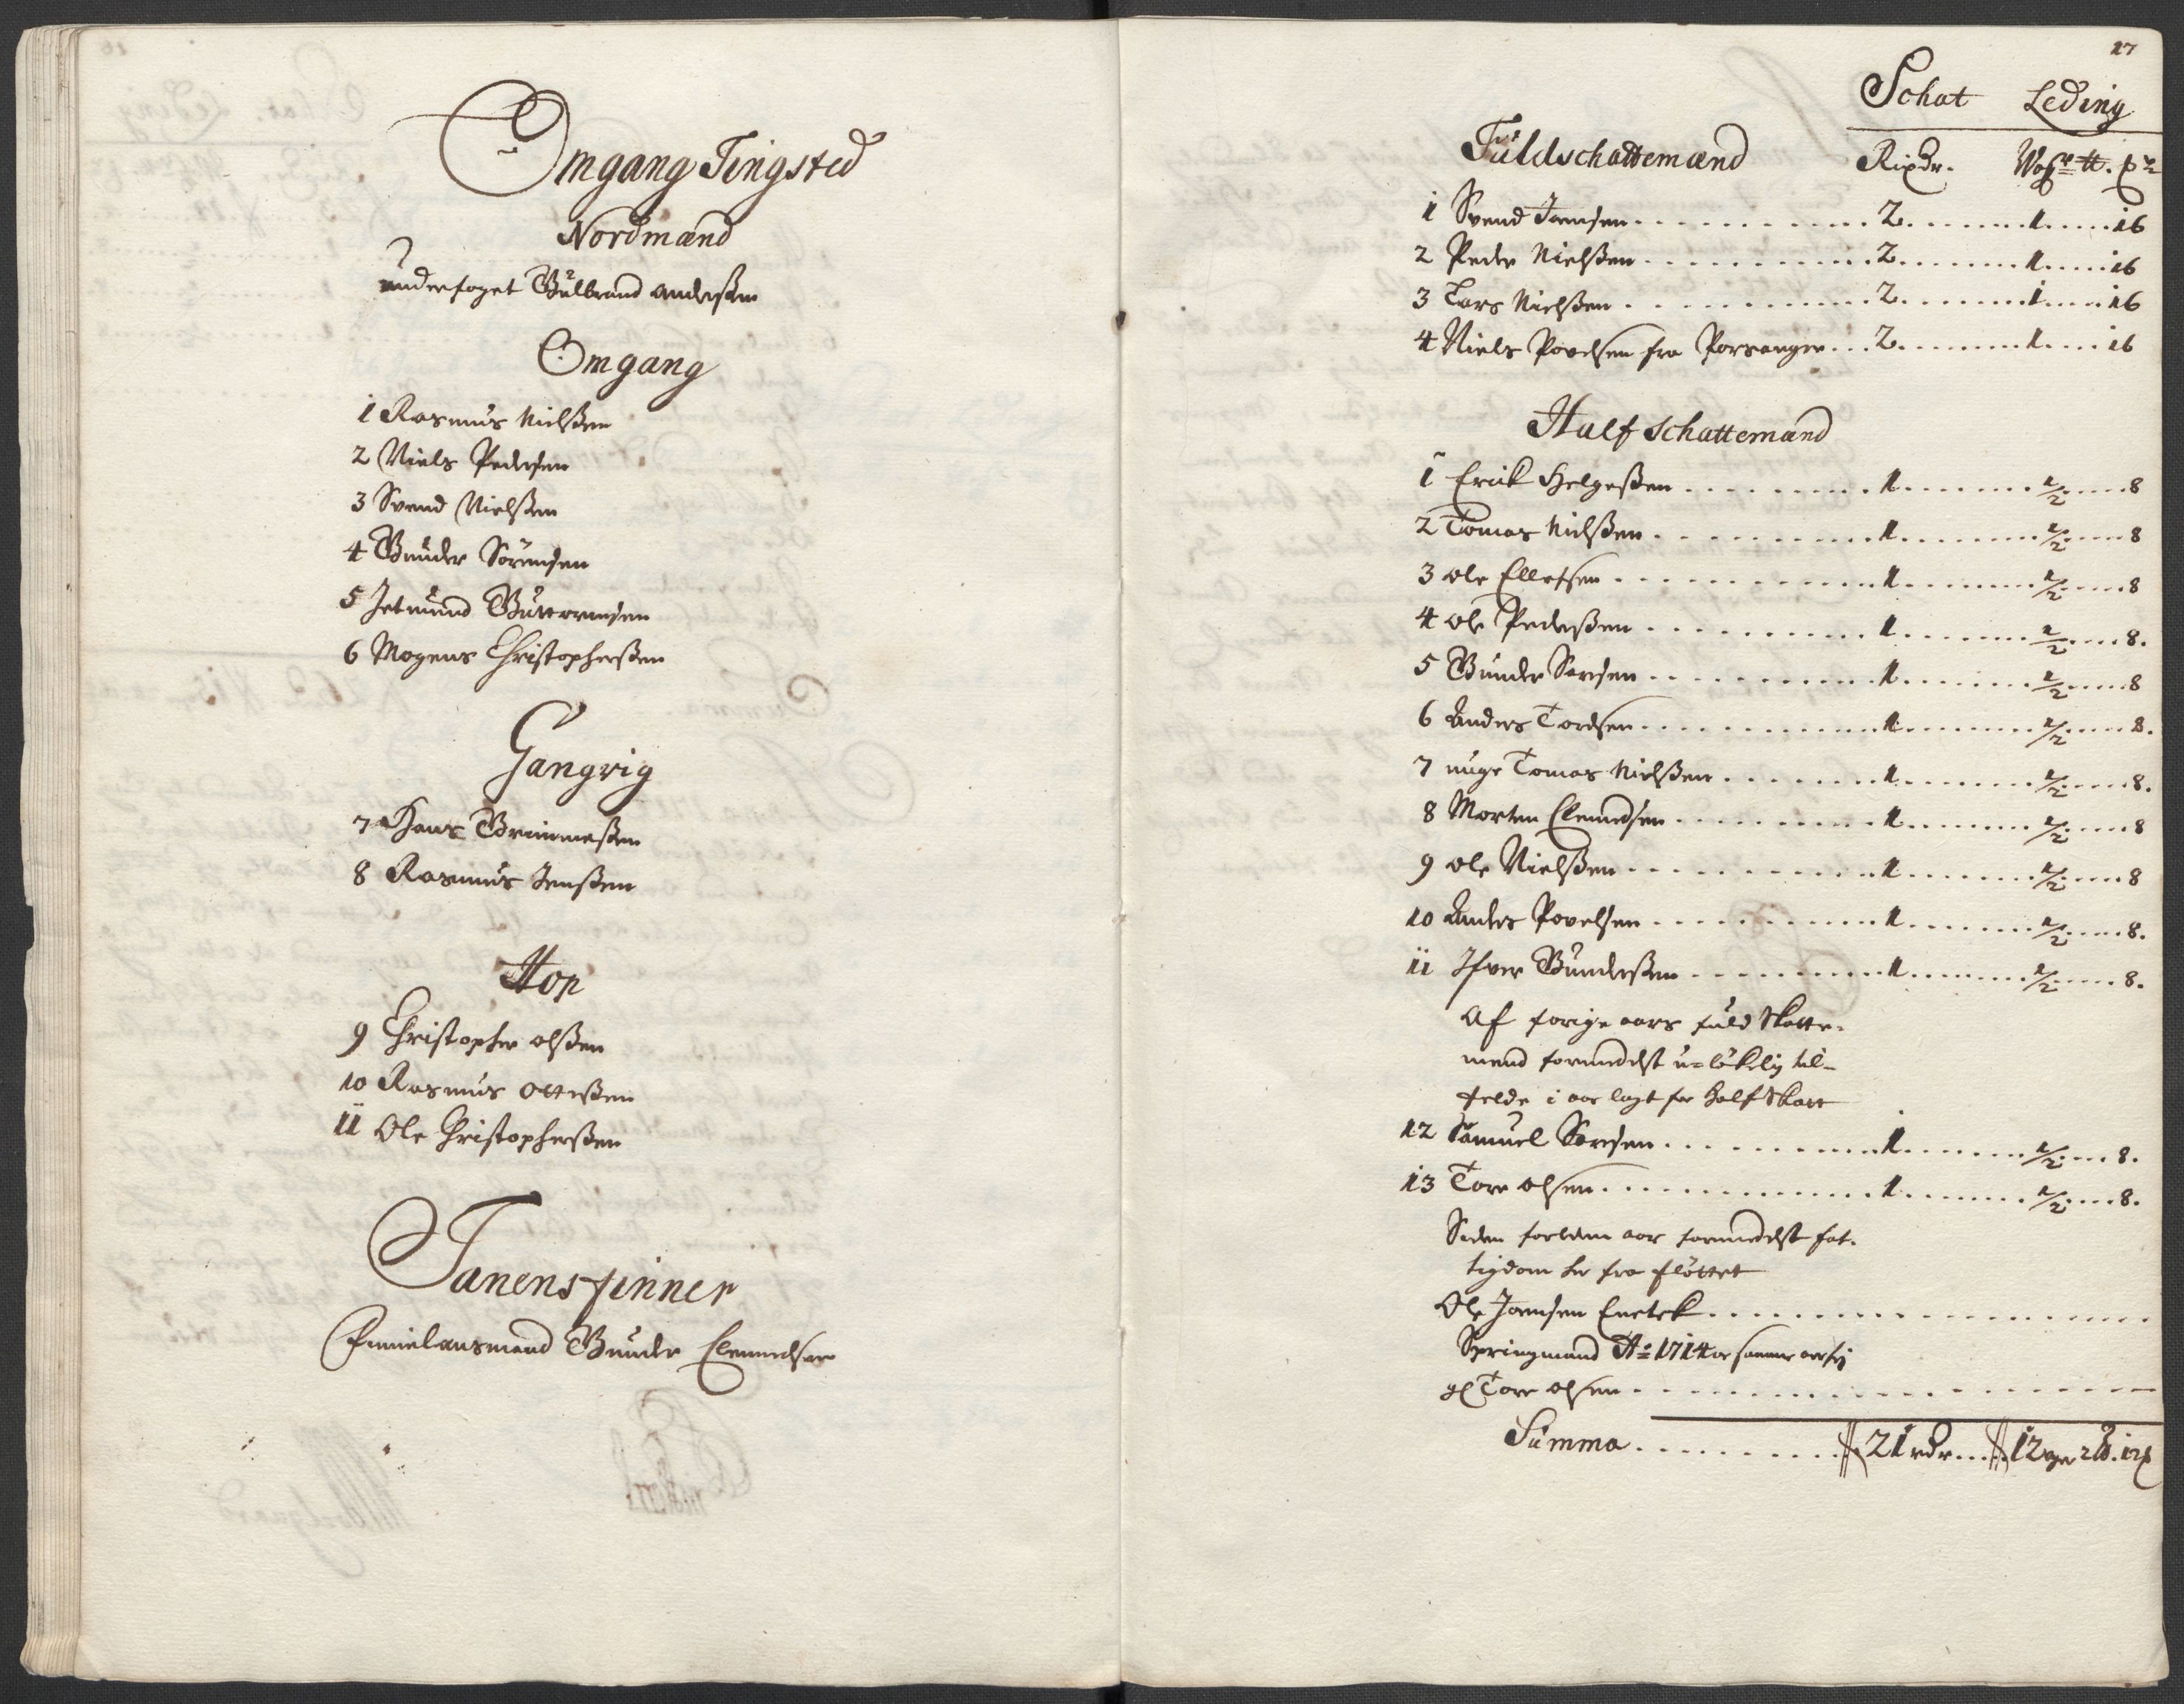 Omgang Tingsted
Nordmænd
underfoget Gulbrand Anderßen
Omgang
1 Rasmus Nielßen
2 Niels Pedersen
3 Svend Nielßen
4 Gunder Sörensen
5 Jetmund Guttormsen
6 Mogens Christopherßen
Gangvig
7 Hans
8 Rasmus Jenßen
Hop
9 Christopher olßen
10 Rasmus Otterßen
11 Ole Christopherßen
Tanens finner
Gunder Clemedsen
17
Schat Leding
Füldschattemænd Rixdr. Woger ℔.
1 Svend Joensen 2 1 16
2 Peder Nielßen 2 1 16
3 Lars Nielßen 2 1 16
4 Niels Povelsen fra Porsanger 2 1 16
Half schattemænd
1 Erick Helgeßen 1 1/2 8
2 Tomas Nielßen 1 1/2 8
3 ole Ellefsen 1 1/2 8
4 ole Pederßen 1 1/2 8.
5 Gunder Sarsen 1 1/2 8
6 Anders Tordsen 1 1/2 8.
7 unge Tomas Nielßen 1 1/2 8.
8 Morten Clemedsen 1 1/2 8
9 ole Nielßen 1 1/2 8
10 Anders Povelsen 1 1/2 8.
11 Ifver Gunderßen 1 1/2 8.
Af forige aars fuld Skatte-
mend formedelst u-lökelig til-
felde i aar lagt for half Skatt
12 Samuel Sarsen 1 1/2 8.
13 Tore olsen 1 1/2 8.
Siden forleden aar formedelst fat-
tigdom her fra flöttet
Ole Joensen
Springmand Ao 1714
gl Tore olsen
Summa 21 rdr 12